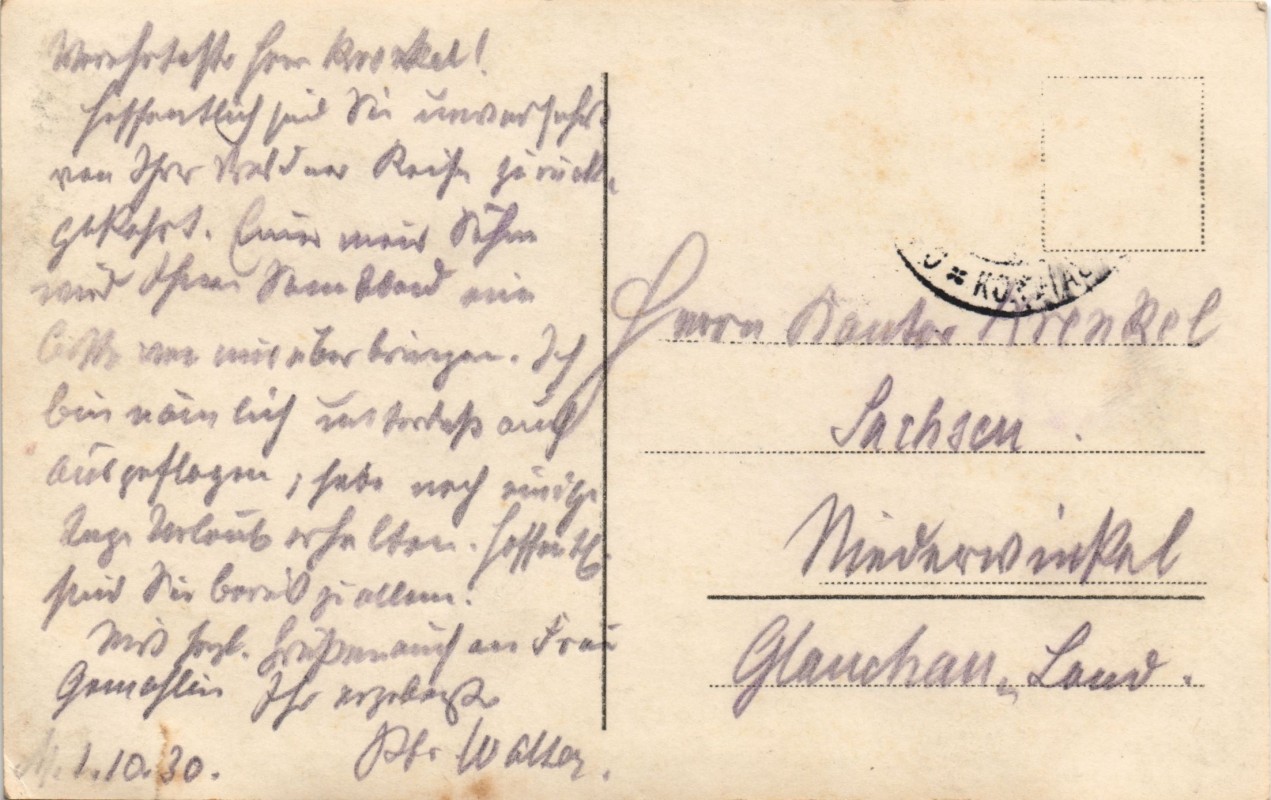 Verehrtester Herr Krenkel!
Hoffentlich sind Sie unversehrt
von Ihrer Dresdner Reise zurück-
gekehrt. mein Sohn
wird Ihnen Sonnabend eine
Bitte von mir überbringen. Ich
bin nämlich unterdeß auch
ausgeflogen, habe noch einige
Tage Urlaub erhalten. Hoffentl.
sind Sie bereit zu allem.
Mit herzl. Grüßen auch an Frau
Gemahlin Ihr ergebenster
Walter.
1.10.30.
Herrn Kantor Krenkel
Sachsen.
Niederwinkel
Glauchau-Land.